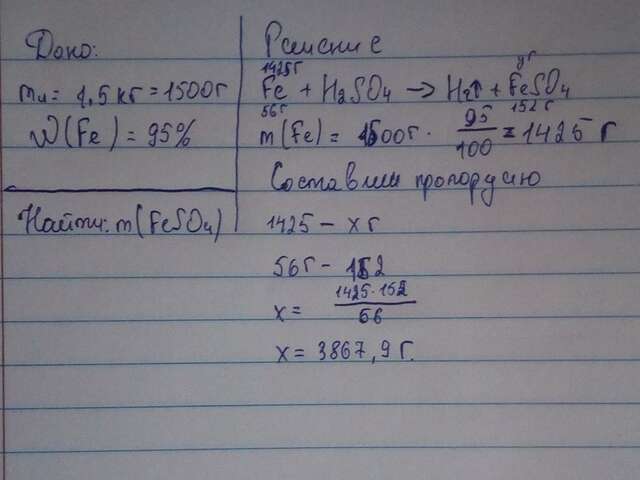 Дано:
mч = 1,5 кг = 1500г
W(Fe) = 95%
Найти: m(FeSO4)
Решение
1425г хг
Fe + H2SO4 → H2↑ + FeSO4
56г 152 г
m(Fe) = 1500г · 95/100 = 1425 г
Составим пропорцию
1425 – х г
56г – 152
х = 1425·152/56
х = 3867,9 г.